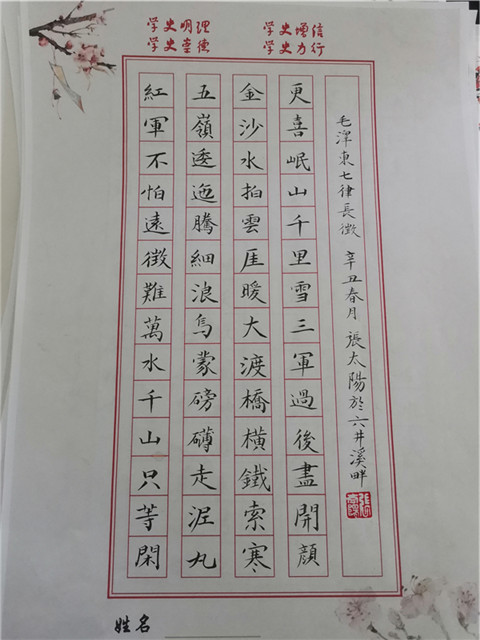 学史明理 学史增信
学史崇德 学史力行
紅軍不怕遠徵難萬水千山只等閑
五嶺逶迤騰細浪烏蒙磅礴走泥丸
金沙水拍雲厓暖大渡橋橫鐵索寒
更喜岷山千里雪三軍過後盡開顏
毛澤東七律長徵 辛丑春月 張太陽於六井溪畔
姓名